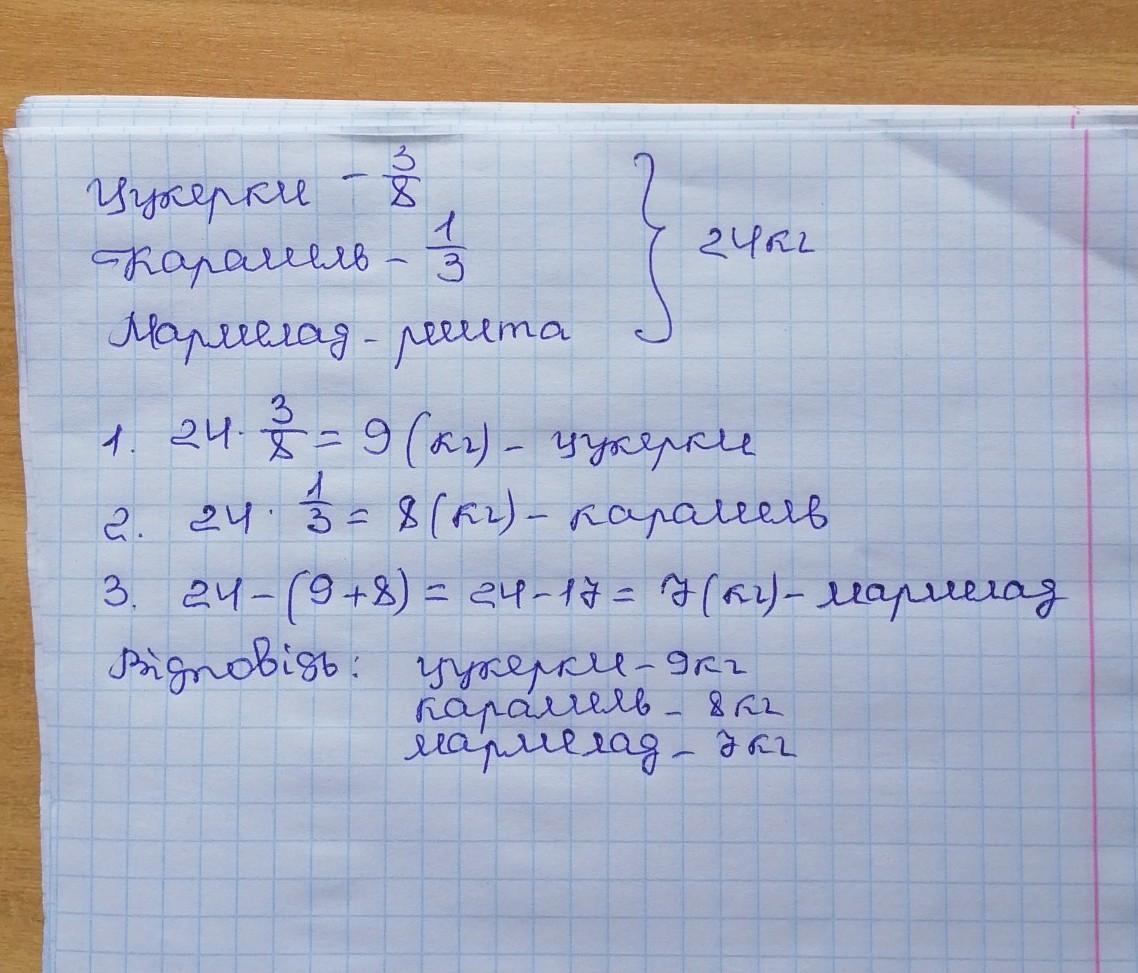 Цукерки - 3/8
Карамель - 1/3
Мармелад - решта
} 24кг
1. 24 · 3/8 = 9 (кг) - цукерки
2. 24 · 1/3 = 8 (кг) - карамель
3. 24 - (9+8) = 24 - 17 = 7 (кг) - мармелад
Відповідь: цукерки - 9кг
карамель - 8кг
мармелад - 7кг